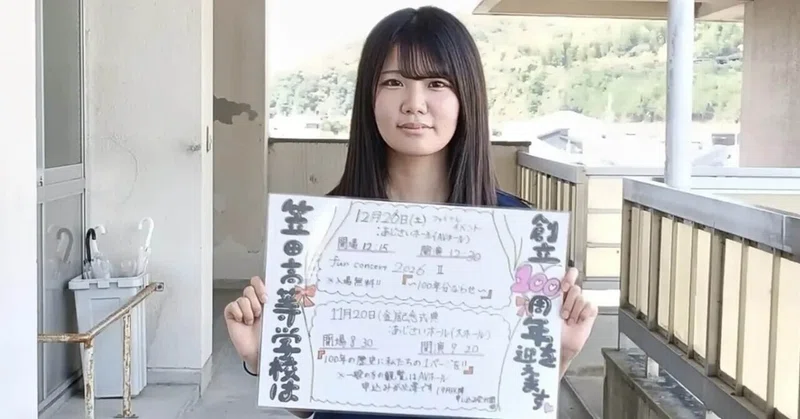 笠田高等学校は
創立100周年を迎えます
12月26日(土) ファイナルイベント
:あじさいホール(AVホール)
開場 12:15 開演 12:30
fun concert 2026 II
※入場無料!! 『〜100年分のわせ〜』
11月20日(金)記念式典
:あじさいホール(大ホール)
開場 8:30 開演 9:20
『100年の歴史に私たちの1ページを』
※一般の方の観覧はAVホール
申込みが必要です